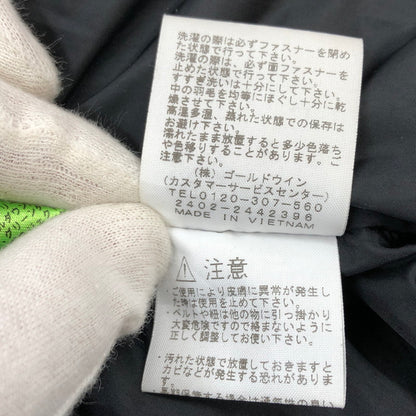 洗濯の際は必ずファスナーを閉め
た状態で行って下さい。
洗濯の際は、必ず面ファスナーを
止めた状態で行って下さい。
すすぎ洗いは十分にして下さい。
中の羽毛を均等にほぐし十分に乾
燥させて下さい。
高温多湿、蒸れた状態での保存は
お避け下さい。
濡れたまま放置すると多少色落ち
や色移りすることがあります。ご
注意下さい。
(株) ゴールドウイン
(カスタマーサービスセンター)
TEL0120-307-560
2402-2442398
MADE IN VIETNAM
注意
・ご使用により皮膚に異常が発生し
た時は使用を中止して下さい。
・ベルトや紐は他の物に引っ掛かり
大変危険ですので絡まないように
正しく調整してお使い下さい。
・汚れた状態で放置しておきますと
カビなどが発生する恐れがありま
す。